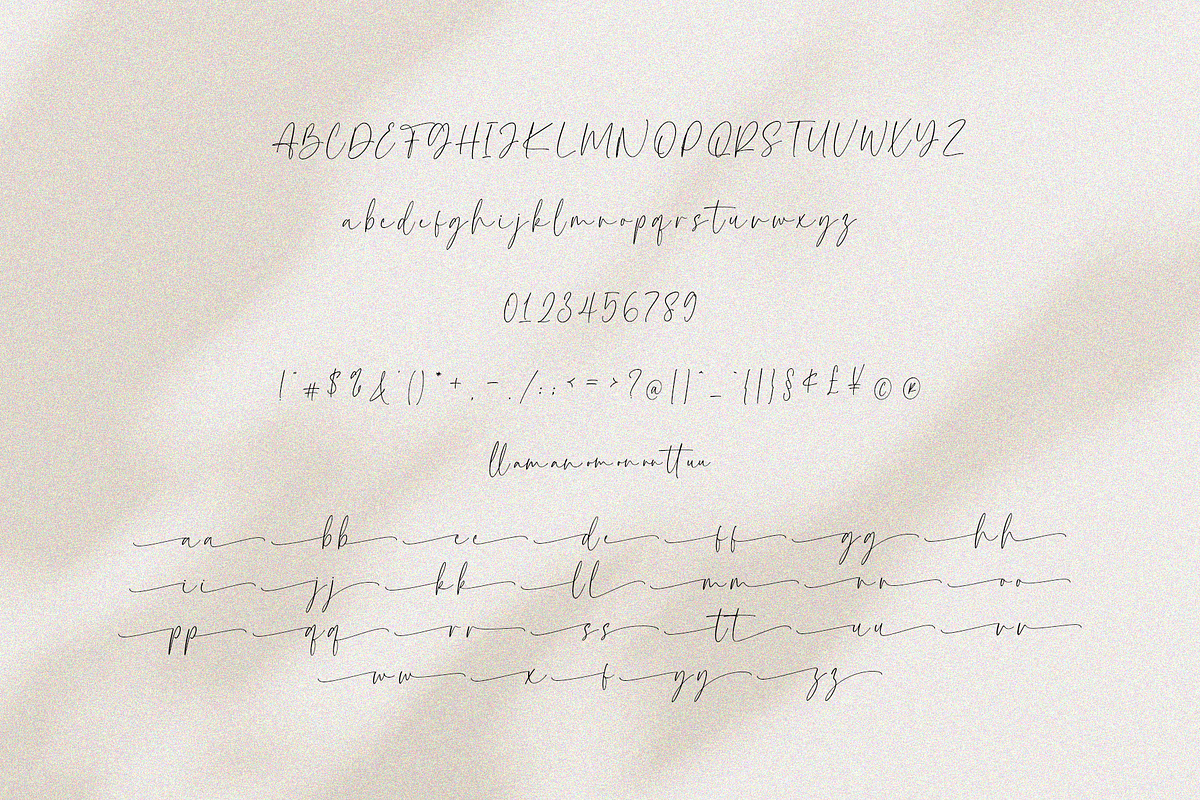 ABCDEFGHIJKLMNOPQRSTUVWXYZ
abcdefghijklmnopqrstuvwxyz
0123456789
!"#$%&'()*+,-./:;<=>?@[\]^_`{|}§¢£¥©®
ll am an om on nn tt uu
aa bb cc de ff gg hh
ii jj kk ll mm nn oo
pp qq rr ss tt uu vv
ww x f yy zz